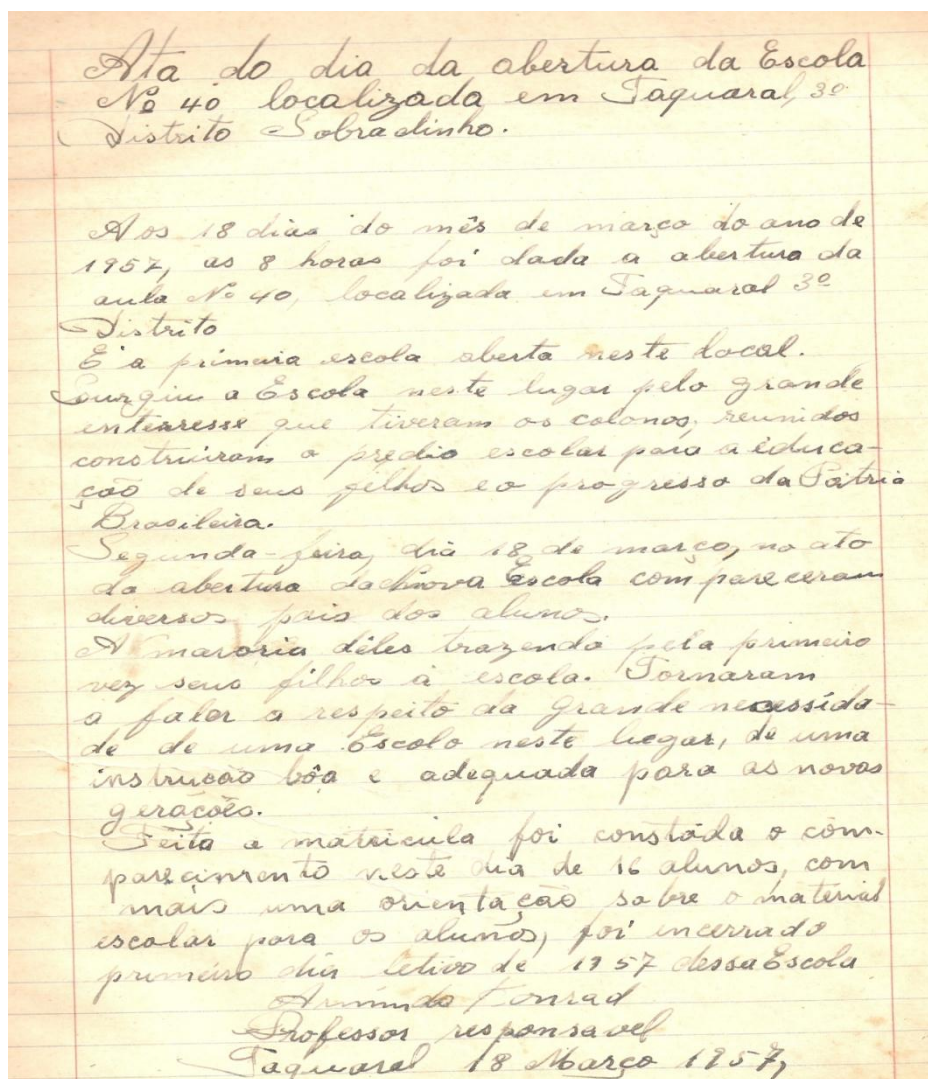 Ata do dia da abertura da Escola
Nº 40 localizada em Taquaral, 3º
Distrito Sobradinho.
Aos 18 dias do mês de março do ano de
1957, as 8 horas foi dada a abertura da
aula Nº 40, localizada em Taquaral 3º
Distrito
E' a primeira escola aberta neste local.
Sourgiu a Escola neste lugar pelo grande
enterresse que tiveram os colonos, reunidos
construiram o prédio escolar para a educa-
ção de seus filhos e o progresso da Pátria
Brasileira.
Segunda-feira, dia 18, de março, no ato
da abertura da nova Escola compareceram
diversos pais dos alunos.
A maroria dêles trazendo pela primeiro
vez seus filhos à escola. Tornaram
a faler a respeito da grande necessida-
de de uma Escola neste lugar, de uma
instrução bôa e adequada para as novas
gerações.
Feita a matricula foi constáda o com-
parecimento neste dia de 16 alunos, com
mais uma orientação sobre o material
escolar para os alunos, foi encerrado
primeiro dia letivo de 1957 dessa Escola
Armindo Konrad
Professor responsavel
Taquaral 18 Março 1957,